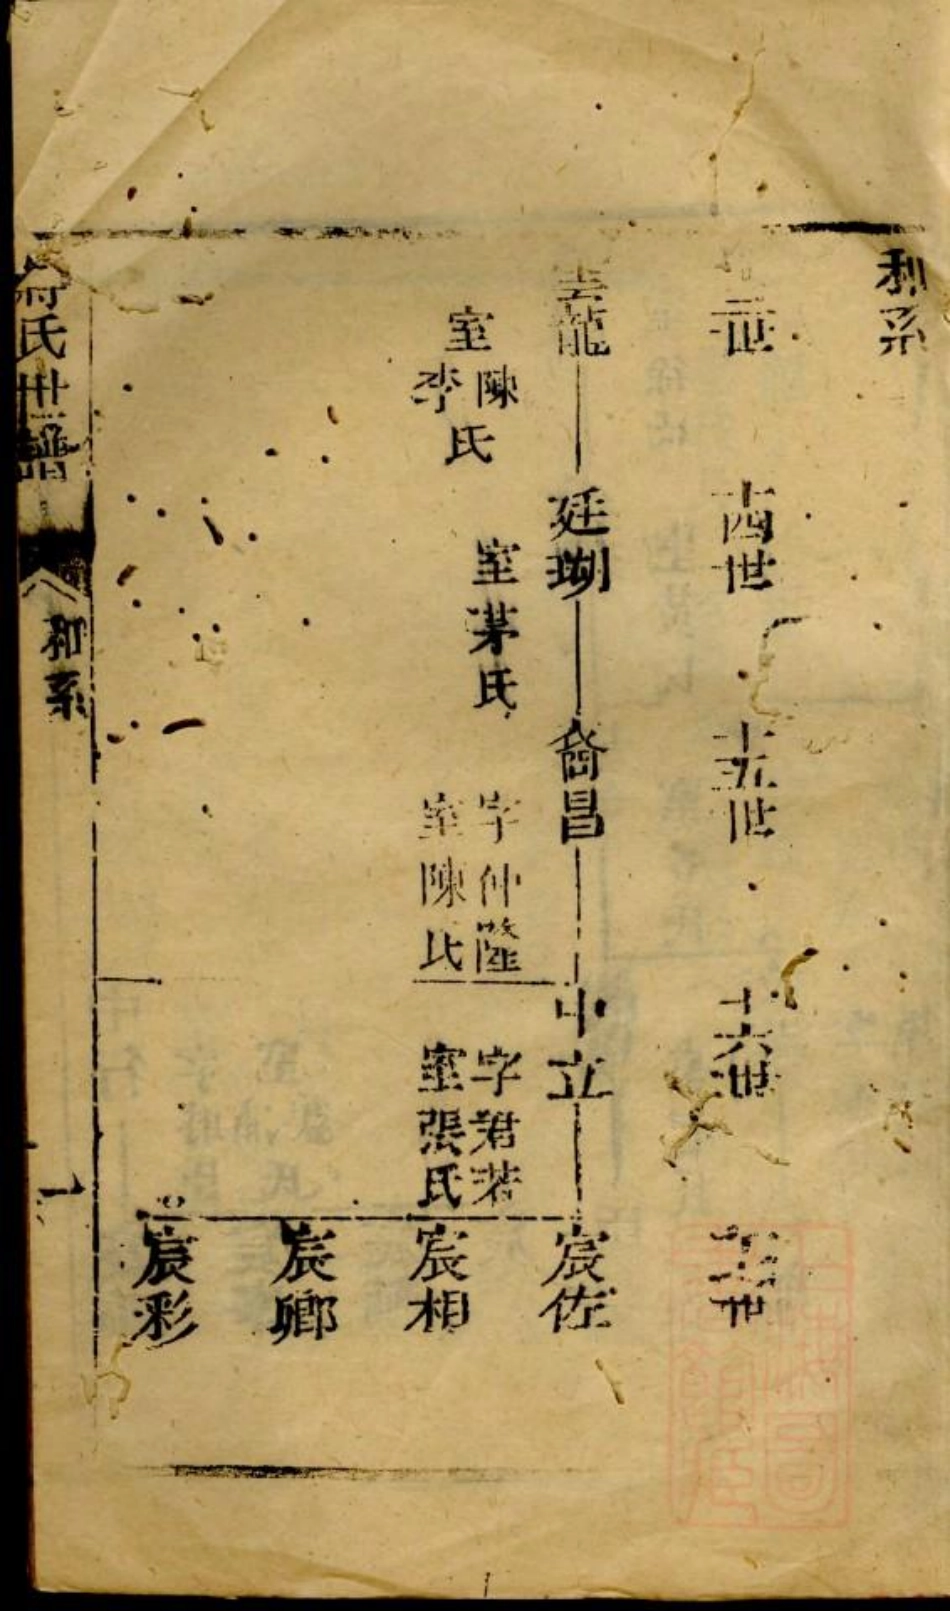 和系
三世
十四世
十五世
十六世
十七世
雲龍
廷瑚
裔昌
中立
宸佐
室陳李氏
室茅氏
字仲隆
室陳氏
字君若
室張氏
宸相
宸卿
宸彩
氏世譜
和系
一